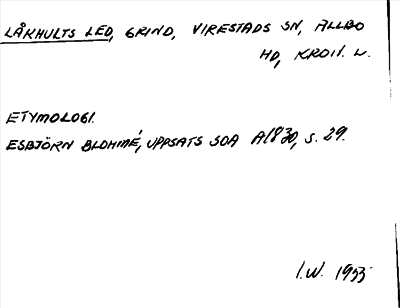 LÅKHULTS LED, GRIND, VIRESTADS SN, ALLBO
HD, KRON. L.
ETYMOLOGI.
ESBJÖRN BLOHMÉ, UPPSATS SOA A1830, S. 29.
I.W. 1955